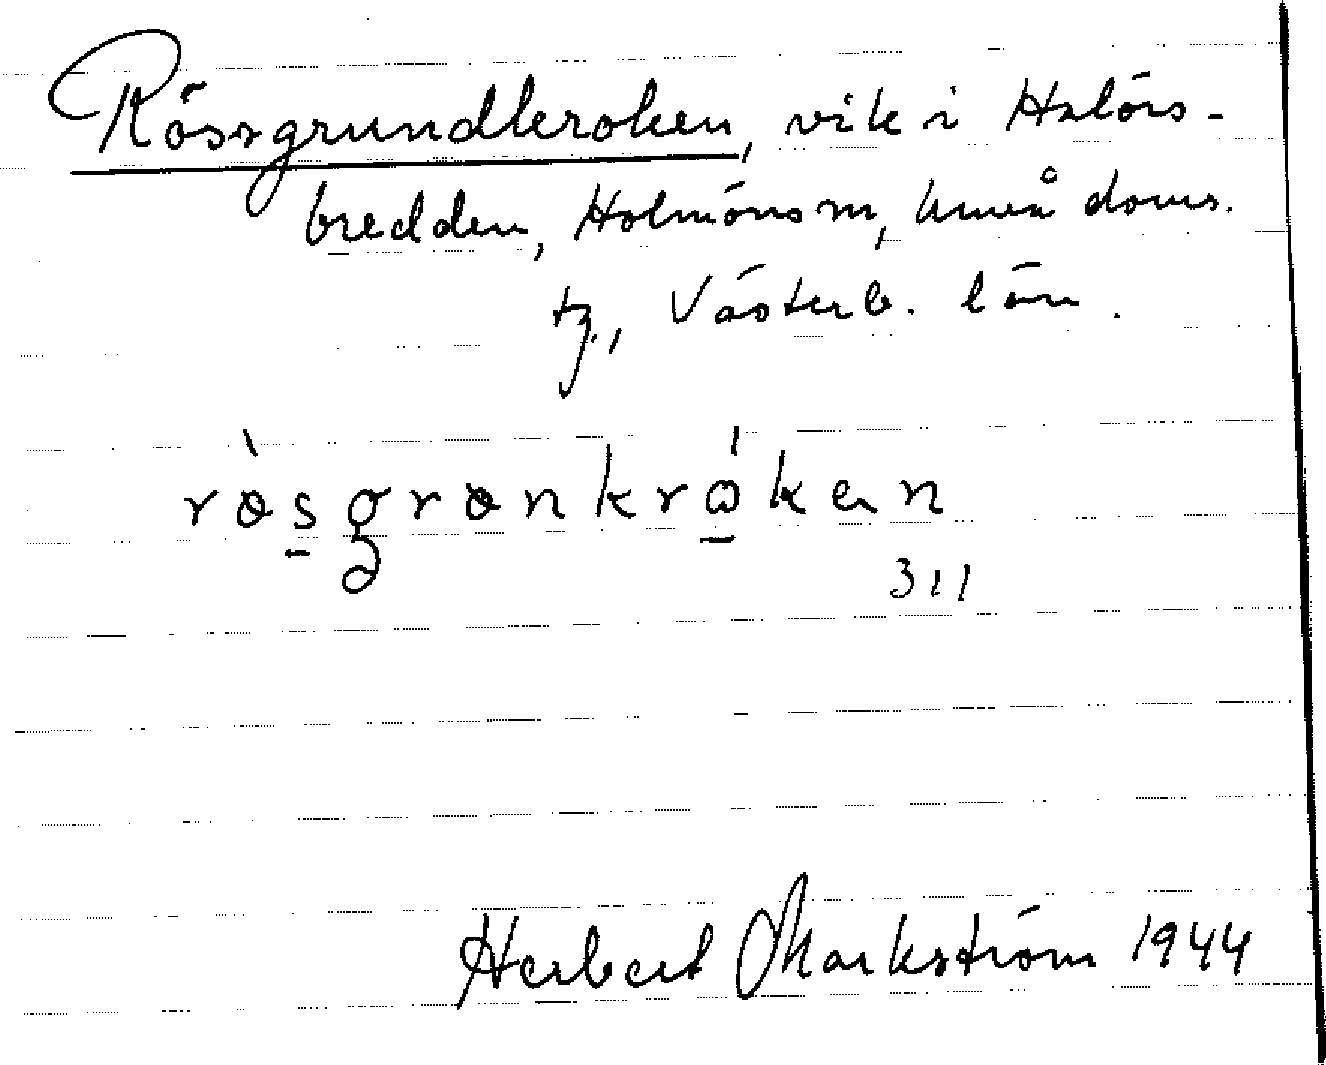 Rössgrundkroken, vik i Halörs-
bredden, Holmöns sn, Umeå doms.
tg., Västerb. län.
rösgrønkrókən
311
Herbert Markström 1944